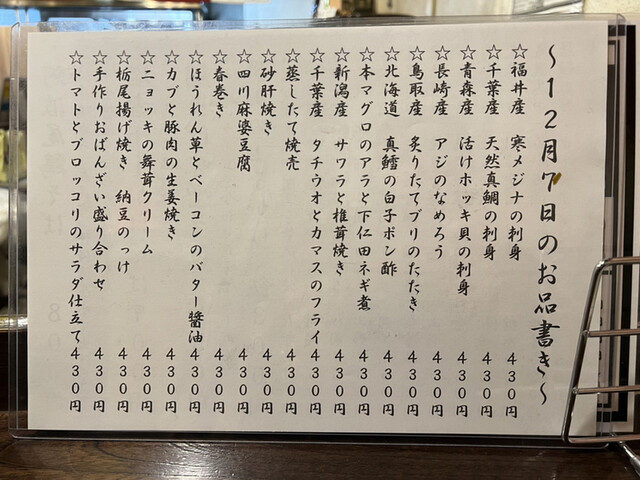 ～12月7日のお品書き～
☆福井産 寒メジナの刺身 430円
☆千葉産 天然真鯛の刺身 430円
☆青森産 活けホッキ貝の刺身 430円
☆長崎産 アジのなめろう 430円
☆鳥取産 炙りたてブリのたたき 430円
☆北海道 真鱈の白子ポン酢 430円
☆本マグロのアラと下仁田ネギ煮 430円
☆新潟産 サワラと椎茸焼き 430円
☆千葉産 タチウオとカマスのフライ 430円
☆蒸したて焼売 430円
☆砂肝焼き 430円
☆四川麻婆豆腐 430円
☆春巻き 430円
☆ほうれん草とベーコンのバター醬油 430円
☆カブと豚肉の生姜焼き 430円
☆ニョッキの舞茸クリーム 430円
☆栃尾揚げ焼き 納豆のっけ 430円
☆手作りおばんざい盛り合わせ 430円
☆トマトとブロッコリのサラダ仕立て 430円